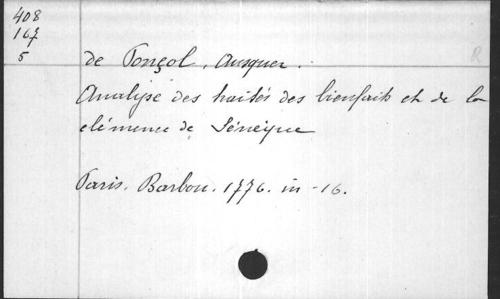 408
167
5
de Ponçol, Ansquer.
R
Analyse des traités des bienfaits et de la
clémence de Sénèque
Paris. Barbou. 1776. in-16.